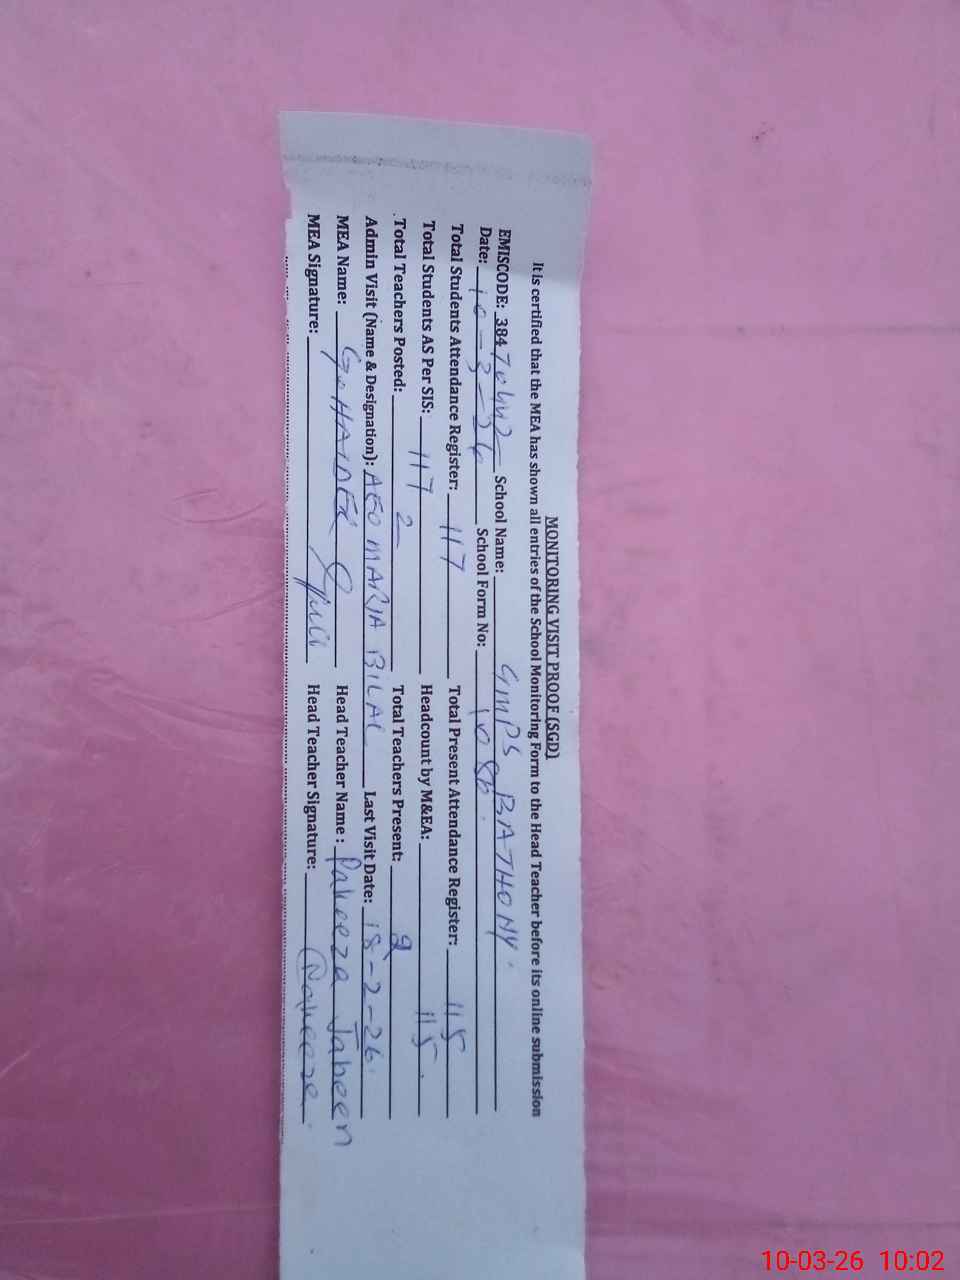 MONITORING VISIT PROOF (SGD)
It is certified that the MEA has shown all entries of the School Monitoring Form to the Head Teacher before its online submission
EMISCODE: 38470442 School Name: GMPS BATHONY.
Date: 10-3-26 School Form No: 10 8b.
Total Students Attendance Register: 117 Total Present Attendance Register: 115
Total Students AS Per SIS: 117 Headcount by M&EA: 115.
Total Teachers Posted: 2 Total Teachers Present: 2
Admin Visit (Name & Designation): AEO MARIA BILAL Last Visit Date: 18-2-26.
MEA Name: G. HAIDER Head Teacher Name : Pakeeza Jabeen
MEA Signature: Head Teacher Signature: Pakeeza.
10-03-26 10:02